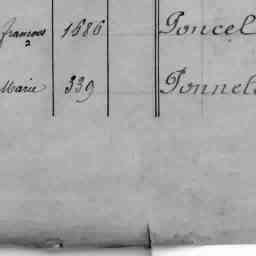 françois 1686 Poncel
Marie 339 Ponnel